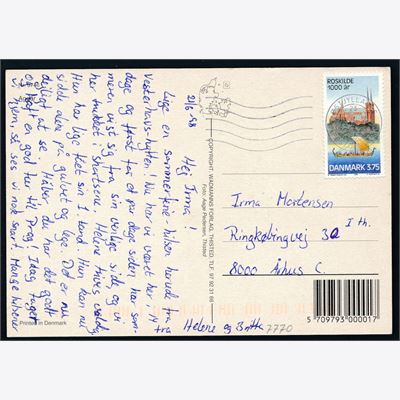 21/6 98
Hej Irma!
Lige en sommerferie hilsen herude fra
Vesterhavs-hytten! Nu har vi været her i 14
dage og først for et par dage siden har som-
meren vist sig fra sin venlige side, og vi
har trukket i shortsene. Helene trives vældig.
Hun har lige fået sin 1. tand. Hun kan nu
sidde alene på gulvet og lege. Det er
dejligt at se. Håber du har det godt
og haft en god tur til Prag. I dag taget
hjem, så ses vi nok snart. Mange hilsner
Helene og Britta
COPYRIGHT: WADMANNS FORLAG, THISTED. TLF. 97 92 31 66
Foto: Aage Pedersen, Thisted
Printed in Denmark
ROSKILDE
1000 år
DANMARK 3.75
Irma Mortensen
Ringkøbingvej 32 I th.
8000 Århus C.
7770
5 709793 000017